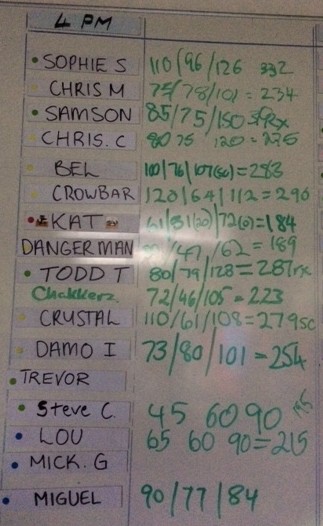 4 PM
SOPHIE S 110/96/126 332
CHRIS M 75/78/101 = 234
SAMSON 85/75/150
CHRIS. C 80 75 120 =
BEL = 283
CROWBAR 120/64/112 = 296
KAT = 184
DANGERMAN /47/62 = 189
TODD T 80/79/128 = 287rx
Chakkerz 72/46/105 = 223
CRYSTAL 110/61/108 = 279sc
DAMO I 73/80/101 = 254
TREVOR
Steve C. 45 60 90
LOU 65 60 90 = 215
MICK. G
MIGUEL 90/77/84